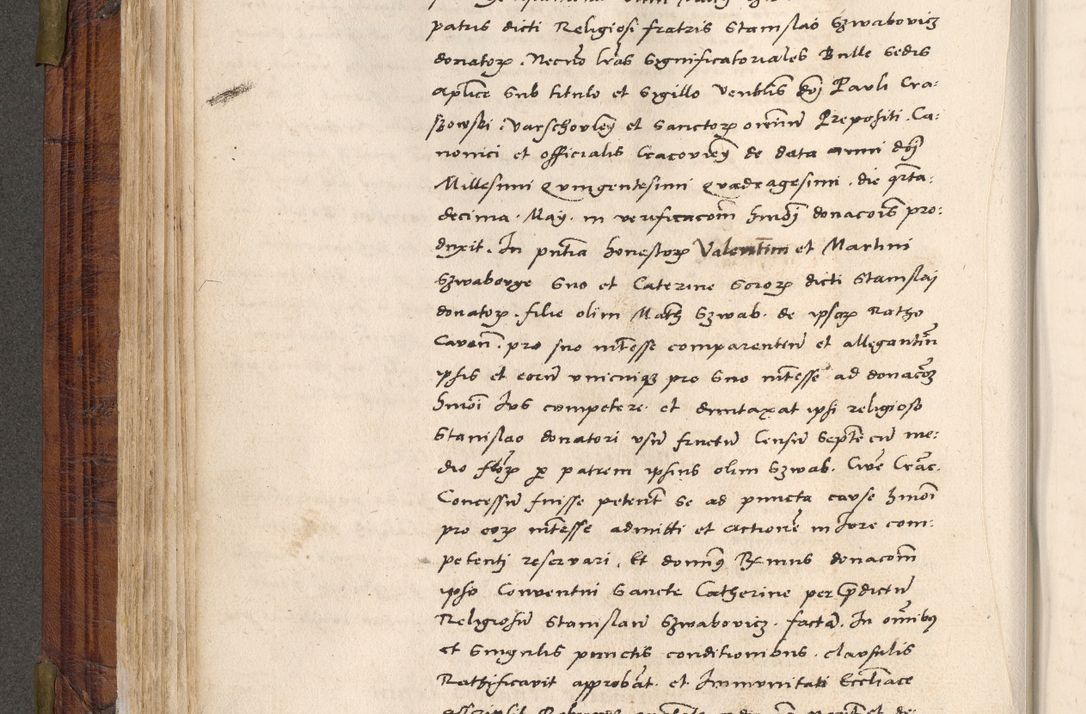 patris dicti Religiosi fratris Stanislao Szwabovicz
donatorum. Necno lras Significatoriales Bulle Sedis
aplice Sub titulo et Sigillo Venblis dnj Pauli Cra-
szowski, Varschovien et Sanctorum omnium Prepositi. Ca:
nonici et officialis Cracovien de data anni dnj
Millesimi Quingentesimi Quadragesimi. die qrta:
decima. May. in verificacoem hmoi donacois pro:
duxit. In pntia honestorum Valentini et Martini
Szwabovye Suo et Caterine Sororum dicti Stanislaj
donatorum. filie olim Math Szwab. de ipsorum Ratho
Caven. pro suo intesse comparentem et allegantem
ipsis et eorum unicuique pro Suo intesse ad donacoem
hmoi Ius competere. et duntaxat ipsi religioso
Stanislao donatori usum fructum Censum Septe cum me:
dio florum per patrem ipsius olim Szwab. Cive Crac.
Concessum fuisse petent se ad puncta cause hmoi
pro eorum intesse admitti et actione in Iure com:
petenti reservari. Et dominus Rxmus donacoem
ipso Conventui Sancte Catherine per predictum
Religiosum Stanislaum Szwabovicz. facta. In omnibus
et Singulis punctis conditionibus. clausulis
Rathificavit approbat. et Immunitati Ecclliace